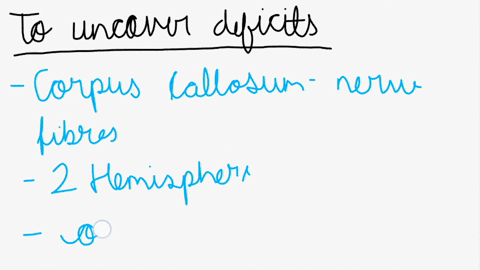 To uncover deficits
- Corpus Callosum - nerve
fibres
- 2 Hemispher
-